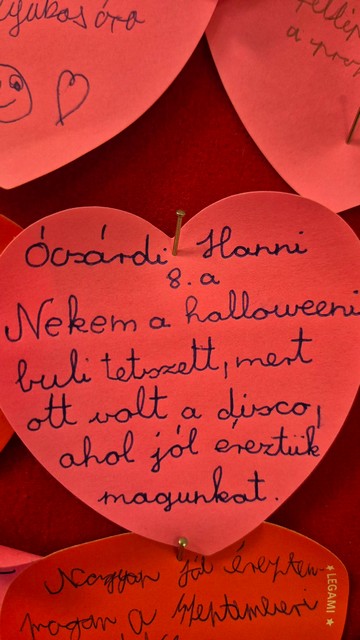 Ócsárdi Hanni
8. a
Nekem a halloweeni
buli tetszett, mert
ott volt a disco,
ahol jól éreztük
magunkat.
Nagyon jól éreztem
magam a szeptemberi
LEGAMI